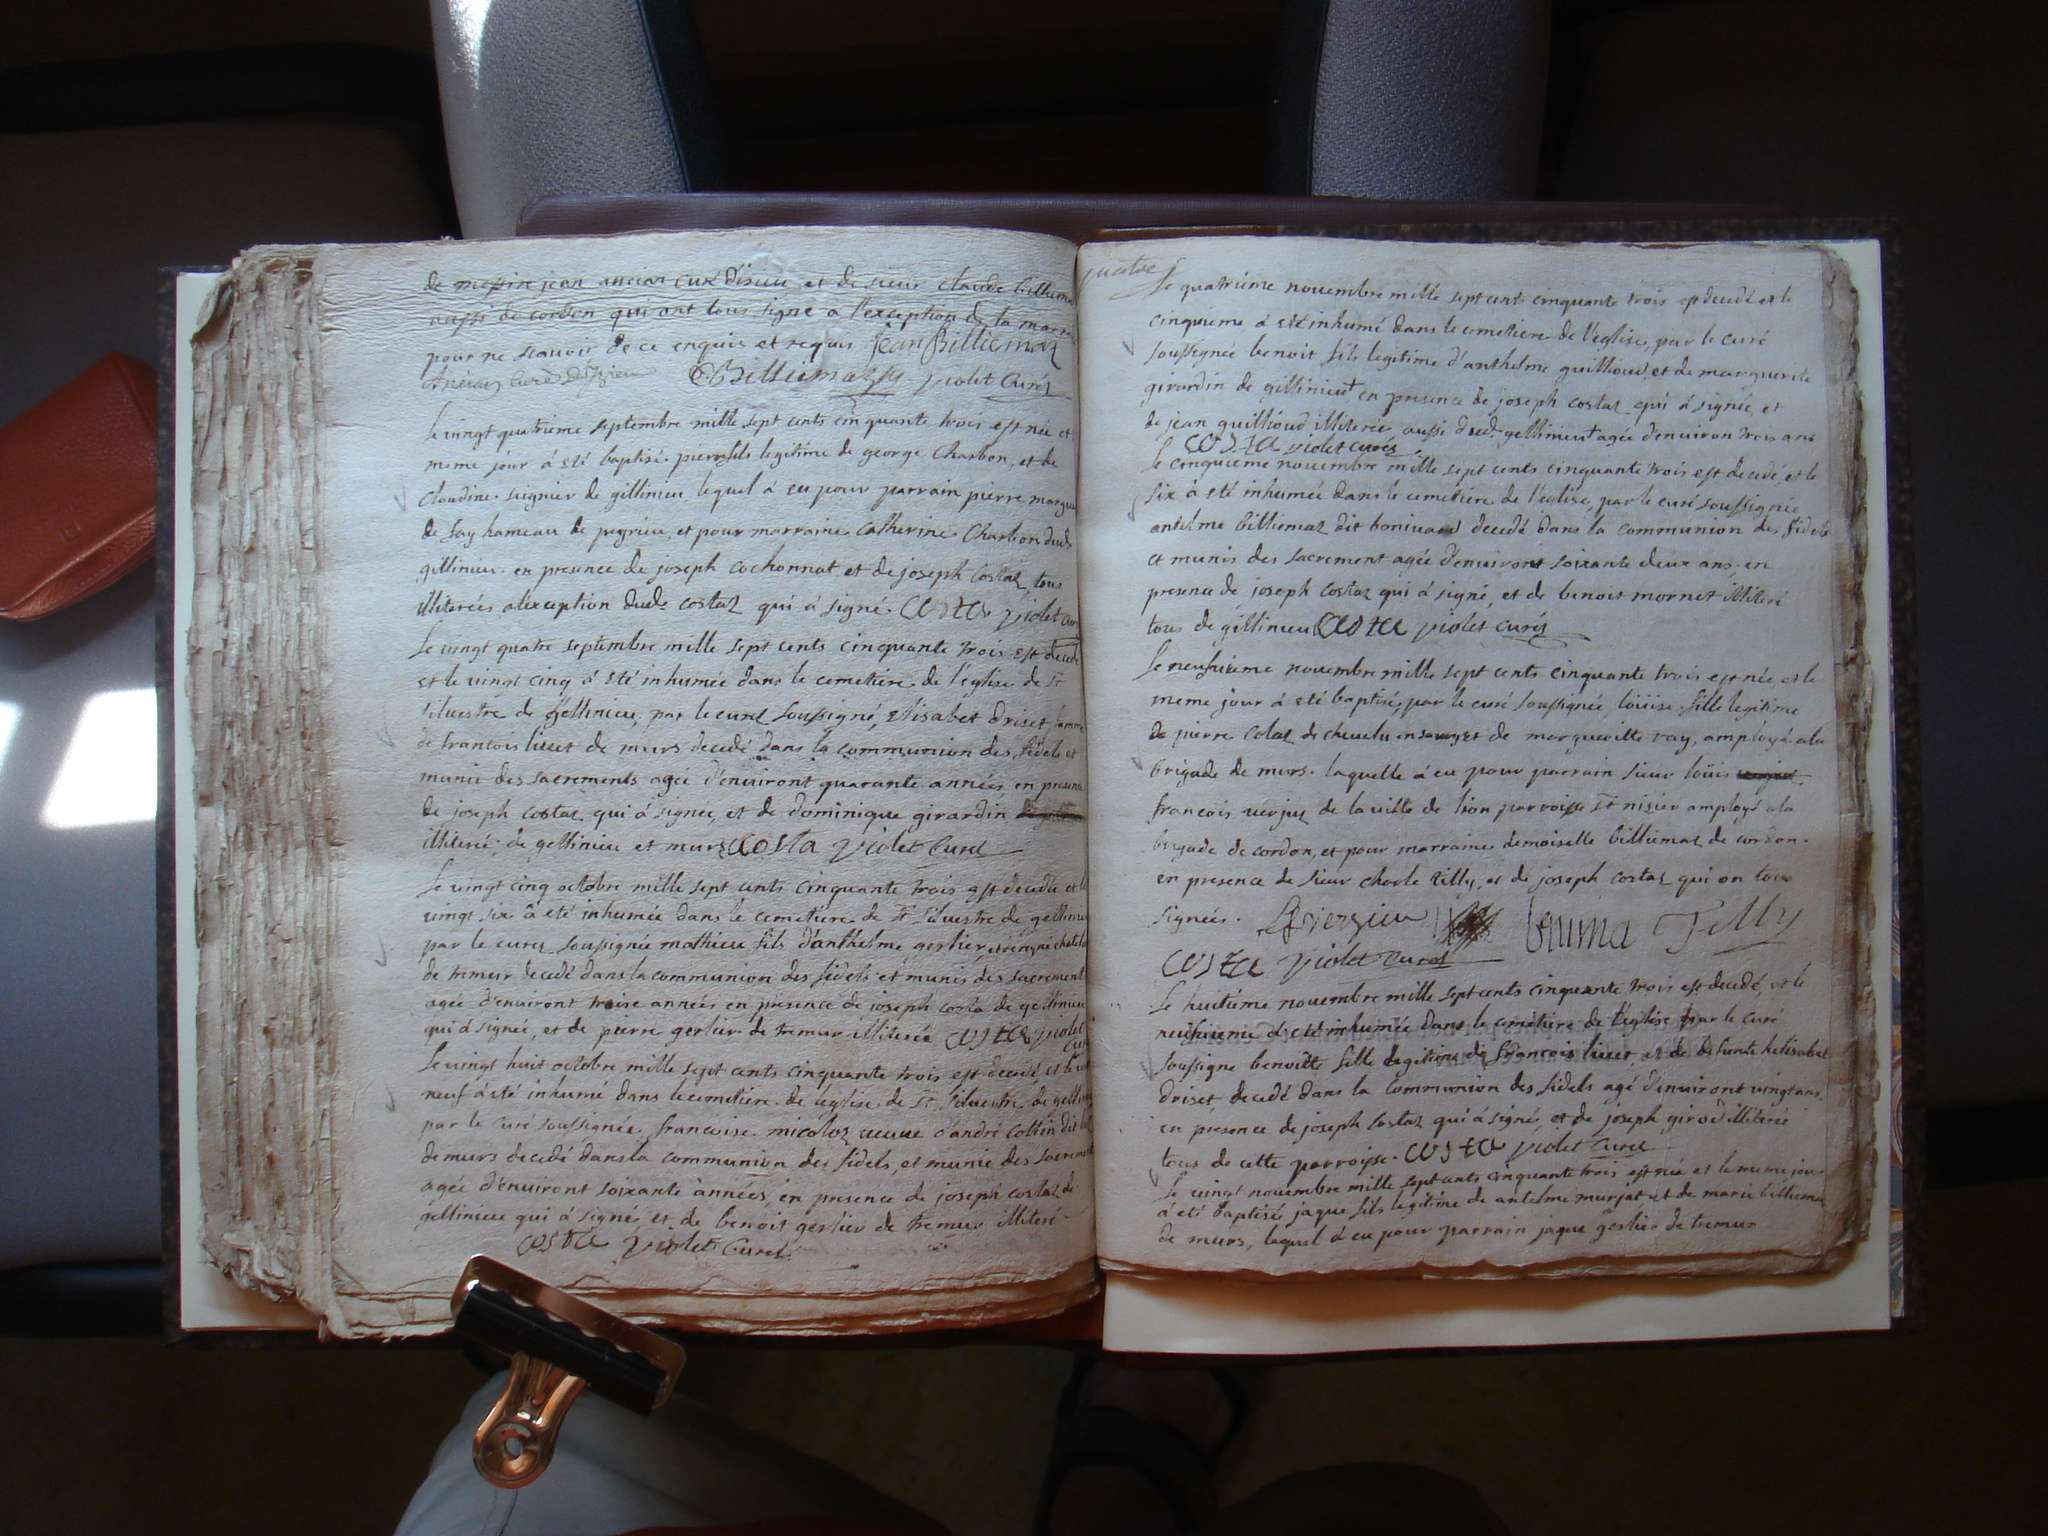 de messire jean ancian curé d'isieu et de sieur claude billiema
aussi de cordon qui ont tous signe a l'exception de la marra
pour ne scavoir de ce enquis et requis jean Billiemaz
curé violet Curéz
le vingt quatrieme septembre mille sept cents cinquante trois est née et
meme jour à été baptisé pierre fils legitime de george Charbon, et de
claudine seignier de gillinieu lequel à eu pour parrain pierre
de say hameau de peyrieu, et pour marraine Catherine Charbon dud.
gillinieu en presence de joseph cochonnat et de joseph Costaz tous
illiterées alexception dude costaz qui à signé. costa violet cur
Le vingt quatre septembre mille sept cents cinquante trois est decedé
et le vingt cinq à été inhumée dans le cemetiere de l'église de st
silvestre de Gellinieu, par le curé soussigné, elisabet driset famme
de francois livet de murs decedé dans la communion des fidels et
munie des sacrements agée d'environt quarante années, en presence
de joseph costaz qui à signée, et de dominique girardin
illiteré, de gellinieu et murs costa violet Curé
Le vingt cinq octobre mille sept cents cinquante trois est decedu et le
vingt six à été inhumée dans le cemetiere de st silvestre de gellinieu
par le curé soussignée mathieu fils d'anthelme gerlier,
de tremur decedé dans la communion des fidels et munis des sacrement
agée d'environt treise années en presence de joseph costa de gellinieu
qui à signée, et de pierre gerlier de tremur illiterée costa violet
cur
Le vingt huit octobre mille sept cents cinquante trois est decedé et le vin
neuf à été inhumée dans le cemetiere de l'église de st silvestre de gellin
par le curé soussignée francoise micoloz veuve d'andré Collin dit
de murs decedé dans la communion des fidels, et munie des sacrement
agée d'environt soixante années, en presence de joseph costaz de
gellinieu qui à signé, et de benoit gerlier de tremur illiteré
costa violet Curé
quatre
Le quatrième novembre mille sept cents cinquante trois est decedé et le
cinquieme à été inhumé dans le cemetiere de l'église, par le curé
soussignée benoit fils legitime d'anthelme guillioud, et de marguerite
girardin de gillinieu en presence de joseph costaz qui à signée, et
de jean guillioud illiteree aussi dud. gellinieu agée d'environ trois ans
costa violet curéz
le cinquieme novembre mille sept cents cinquante trois est decedé, et le
six à été inhumée dans le cemetiere de l'église, par le curé soussignée
antelme billiemaz dit decedé dans la communion des fidels
et munis des sacrement agée d'environt soixante deux ans, en
presence de joseph costaz qui à signé, et de benoit mornet illiteré
tous de gillinieu costa violet curéz
le neufvieme novembre mille sept cents cinquante trois est née, et le
meme jour à été baptisé, par le curé soussignée, loüise fille legitime
de pierre Colaz de chevelu et de margueritte ray, amployé a la
brigade de murs. laquelle à eu pour parrain sieur loüis
francois verjus de la ville de lion parroisse st nisier amployé a la
brigade de cordon, et pour marraine demoiselle billiemaz de cordon.
en presence de sieur charle tilly, et de joseph costaz qui on tous
signées. Tilly
costa violet Curéz
Le huitième novembre mille sept cents cinquante trois est decedé, et le
neufvieme à été inhumée dans le cemetiere de l'église par le curé
soussigne benoitte fille legitime de francois livet et de defunte helisabet
driset, decedé dans la communion des fidels agé d'environt vingt ans
en presence de joseph costaz qui à signé, et de joseph girod illiterée
tous de cette parroisse. costa violet Curé
Le vingt novembre mille sept cents cinquante trois est née et le meme jou
à été baptisé jaque fils legitime de antelme murjat et de marie billiemaz
de murs, lequel à eu pour parrain jaque gerlier de tremur